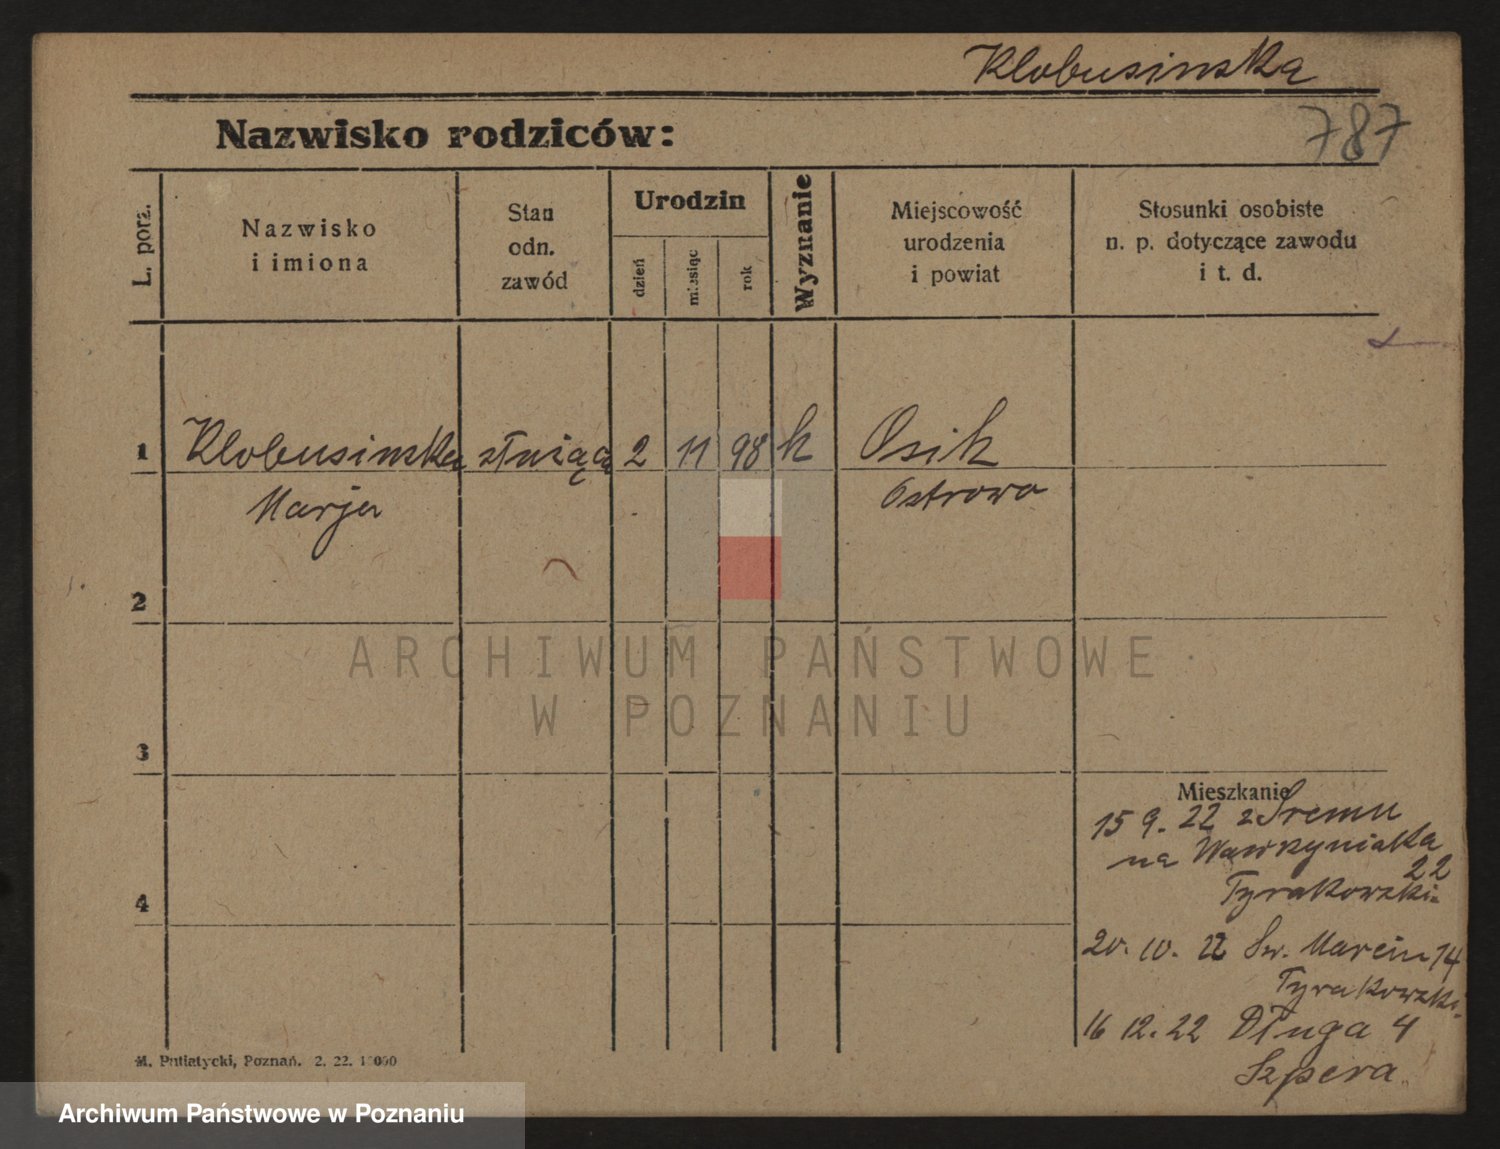 Klobusinska
787
Nazwisko rodziców:
L. porz.
Nazwisko
i imiona
Stan
odn.
zawód
Urodzin
dzień
miesiąc
rok
Wyznanie
Miejscowość
urodzenia
i powiat
Stosunki osobiste
n. p. dotyczące zawodu
i t. d.
1 Klobusinska służąca 2 11 98 k Osik
Marja Ostrowo
2
3
Mieszkanie
15 9. 22 z Śremu
na Wawrzyniaka
22
Tyrakowski
4
20. 10. 22 Św. Marcin 14
Tyrakowski
16 12. 22 Długa 4
Szpera
M. Putiatycki, Poznań. 2. 22. 10000
ARCHIWUM PAŃSTWOWE
W POZNANIU
Archiwum Państwowe w Poznaniu